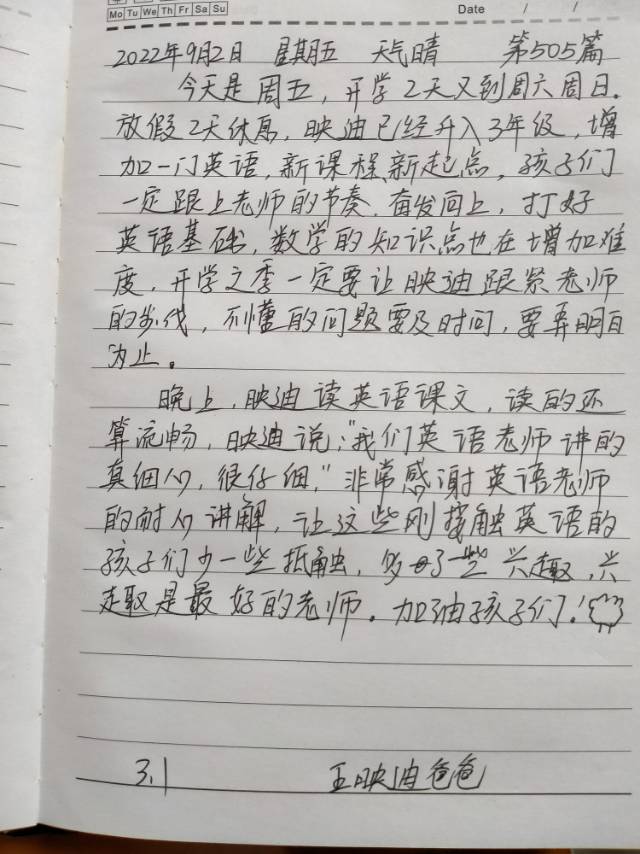 Mo Tu We Th Fr Sa Su
Date / /
2022年9月2日 星期五 天气晴 第505篇
今天是周五，开学2天又到周六周日。
放假2天休息，映迪已经升入3年级，增
加一门英语，新课程、新起点，孩子们
一定跟上老师的节奏，奋发向上，打好
英语基础，数学的知识点也在增加难
度，开学之季一定要让映迪跟紧老师
的步伐，不懂的问题要及时问，要弄明白
为止。
晚上，映迪读英语课文，读的还
算流畅，映迪说："我们英语老师讲的
真细心，很仔细，"非常感谢英语老师
的耐心讲解，让这些刚接触英语的
孩子们少一些抵触，多了一些兴趣，兴
趣是最好的老师。加油孩子们！
3.1 王映迪爸爸